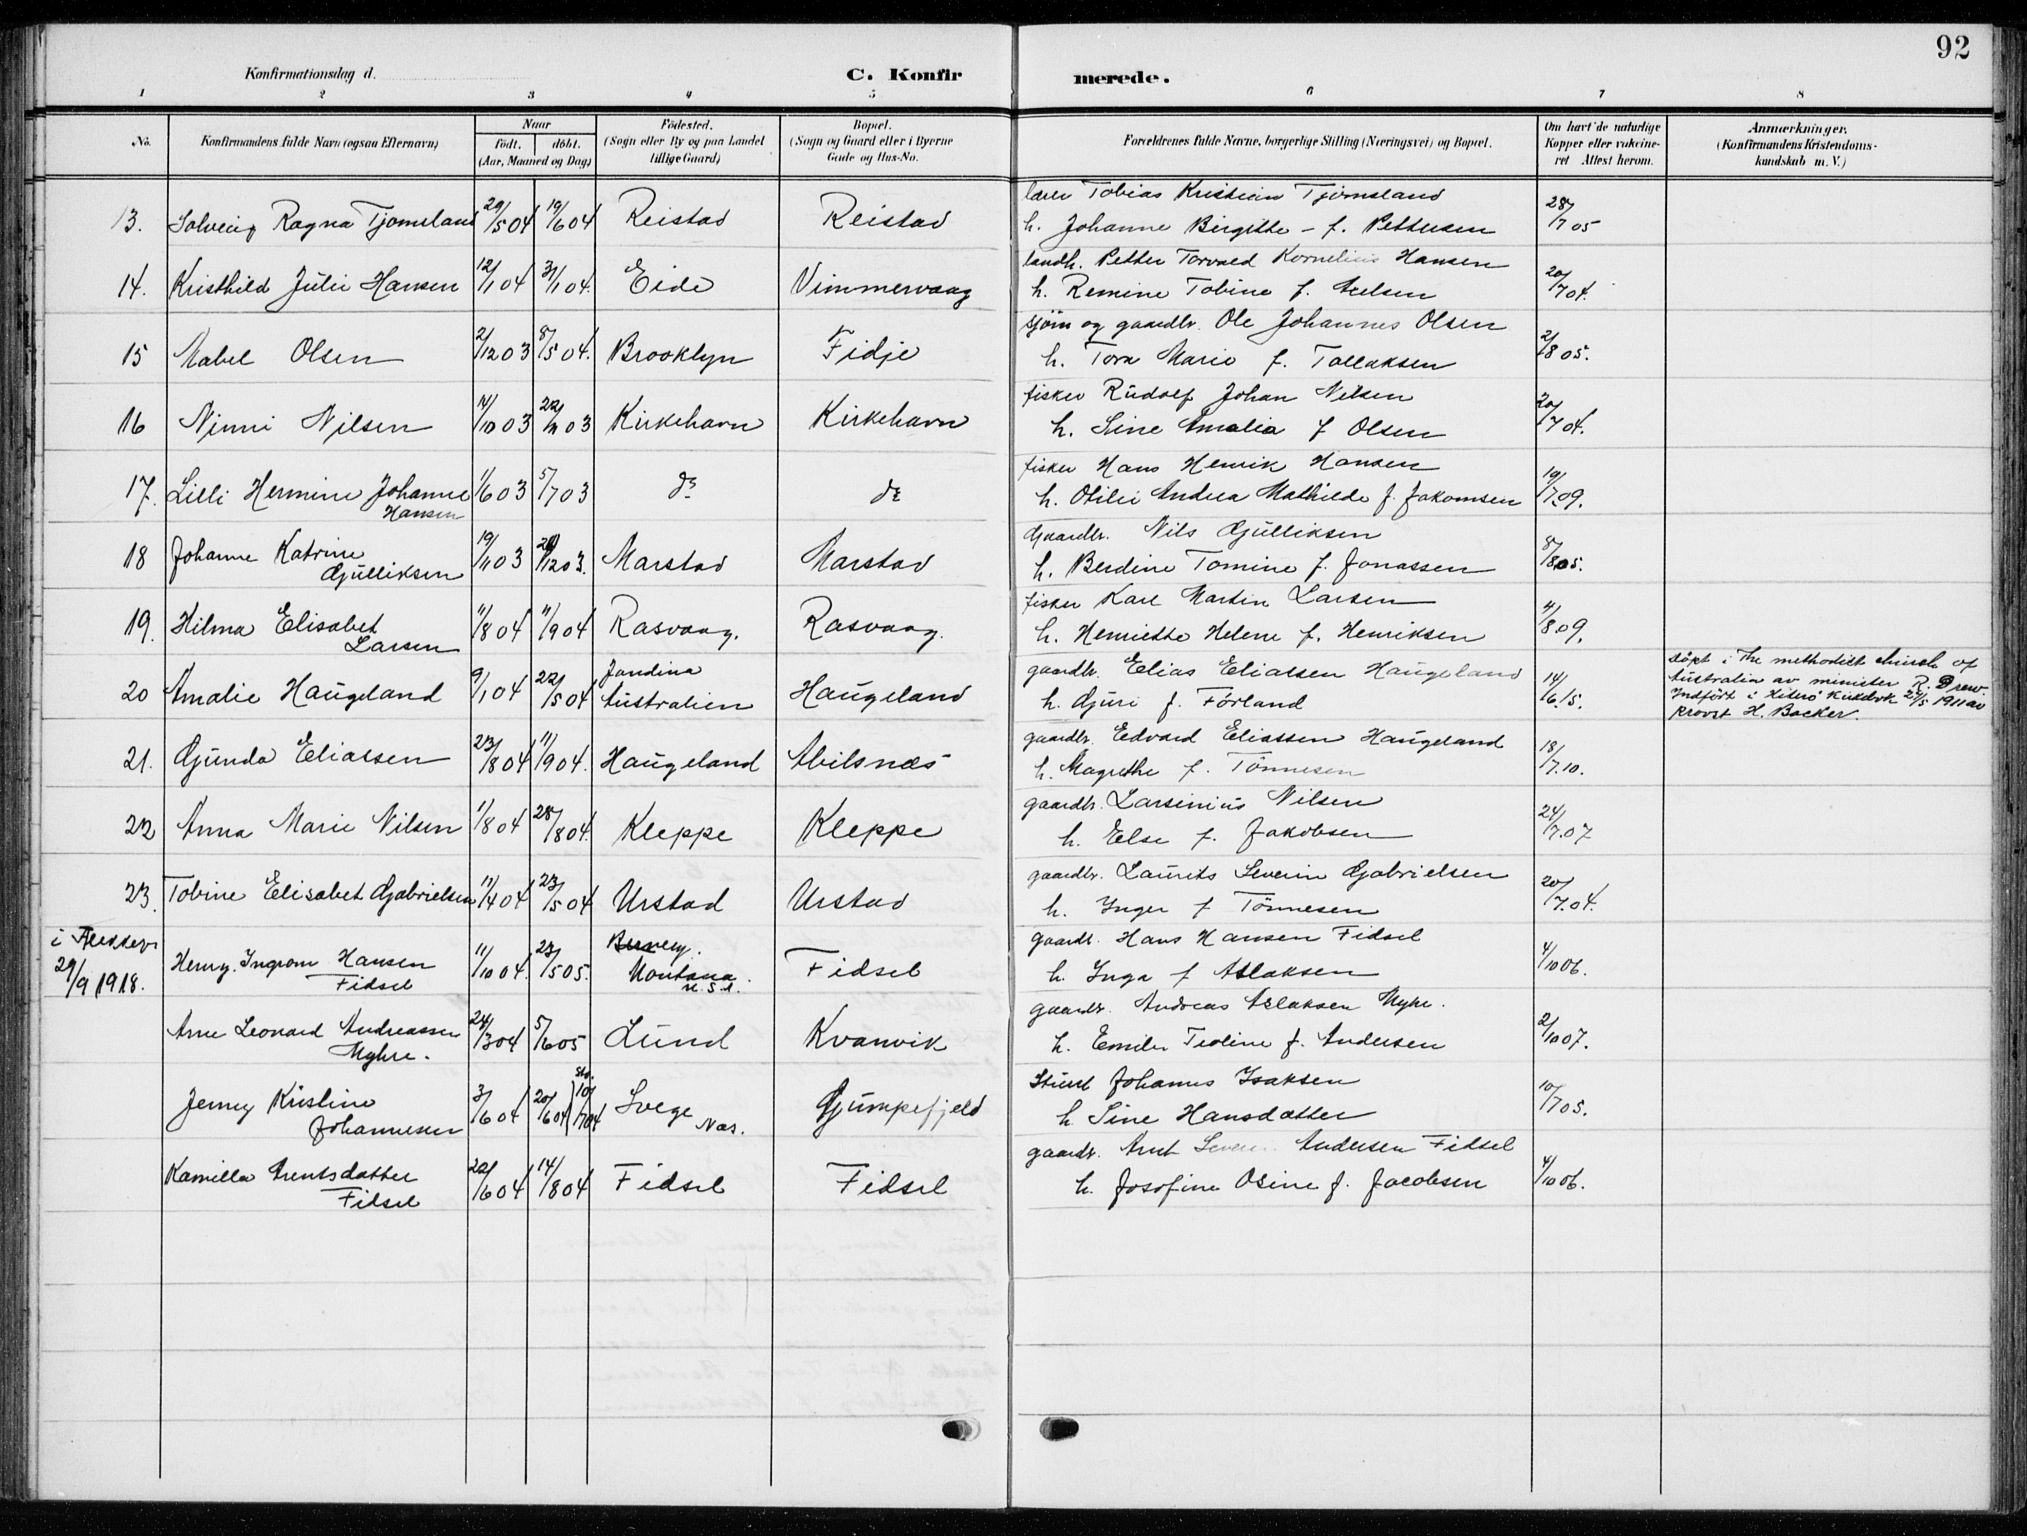 92
Konfirmationsdag d.
C. Konfirmerede.
1 2 3 4 5 6 7 8
No.
Konfirmandens fulde Navn (ogsaa Efternavn)
Naar
födt. döbt.
(Aar, Maaned og Dag)
Födested.
(Sogn eller By og paa Landet
tillige Gaard)
Bopæl.
(Sogn og Gaard eller i Byerne
Gade og Hus-No.
Forældrenes fulde Navne, borgerlige Stilling (Næringsvei) og Bopæl.
Om havt de naturlige
Kopper eller vakcine-
ret Attest herom.
Anmærkninger.
(Konfirmandens Kristendoms-
kundskab m. V.)
lærer Tobias Kristian Tjømsland
13. Solveig Ragna Tjomsland 29/5 04 19/6 04 Reistad Reistad h. Johanne Birgitte - f. Pettersen 28/7 05
landh. Petter Torvald Kornelius Hansen
14. Kristhild Julie Hansen 12/1 04 31/1 04. Eide Vimmervaag h. Remine Tobine f. Axelsen 20/7 04.
sjøm og gaardbr. Ole Johannes Olsen
15 Mabel Olsen 2/12 03 8/5 04. Brooklyn Fidje h. Tora Marie f. Tollaksen 2/8 05.
fisker Rudolf Johan Nilsen
16 Ninni Nilsen 14/10 03 22/11 03 Kirkehavn Kirkehavn h. Sine Amalia f Olsen 20/7 04.
fisker Hans Henrik Hansen
17. Lilli Hermine Johanne 1/6 03 5/7 03 do do h. Otilie Andrea Mathilde f. Jakobsen 19/7.09.
Hansen
Gaardbr. Nils Gulliksen
18 Johanne Katrine 19/11 03 20/12 03. Marstad Marstad h. Berdine Tomine f. Jonassen 8/8 05.
Gulliksen
fisker Karl Martin Larsen
19. Hilma Elisabet 11/8 04 11/9 04 Rasvaag. Rasvaag. h. Henriette Helene f. Henriksen 4/8 09.
Larsen
gaardbr. Elias Eliassen Haugeland
20 Amalie Haugeland 9/1 04 22/5 04 Jandina Australien Haugeland h. Guri f. Förland 14/6 15.
döpt i The methodist church of
Australia av minister R. Drew.
Indført i Hiterø Kirkebok 27/5 1911 av
provst H. Backer.
gaardbr. Edvard Eliassen Haugeland
21. Gunda Eliassen 23/8 04 11/9 04. Haugeland Abilsnæs h. Magrethe f. Tönnesen 18/7.10.
gaardbr. Larsinius Nilsen
22 Anna Marie Nilsen 1/8 04 28/8 04. Kleppe Kleppe h. Else f. Jakobsen 24/7.07
gaardbr. Laurits Severin Gabrielsen
23. Tobine Elisabet Gabrielsen 11/4 04 23/5 04 Urstad Urstad h. Inger f Tönnesen 20/7.04.
gaardb. Hans Hansen Fidsel
i
29/9 1918. Henry Ingrom Hansen 11/10 04. 23/5 05. Montana Fidsel h. Inga f Aslaksen 4/10 06.
Fidsel U.S.A.
gaardbr. Andreas Aslaksen Myhre.
Arne Leonard Andreassen 24/3 04 5/6 05 Lund Kvanvik h. Emilie Teoline f. Andersen 2/10 07.
Myhre.
Johannes Isaksen
Jenny Kristine 3/6 04 20/6 04 10/7 04 Svege Næs. Gumpefjeld h Sine Hansdatter 10/7 05.
Johannessen
gaardbr. Arnt Andersen Fidsel
Kamilla Arentsdatter 22/6 04 14/8 04 Fidsel Fidsel h. Josefine Osine f. Jacobsen 4/10 06.
Fidsel